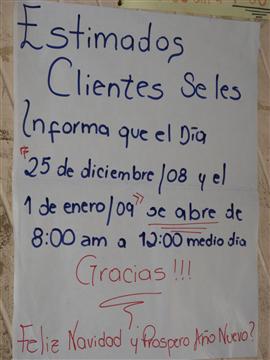 Estimados
Clientes Se les
Informa que el Día
"25 de diciembre/08 y el
1 de enero/09" se abre de
8:00 am a 12:00 medio día
Gracias!!!
Feliz Navidad y Prospero Año Nuevo?